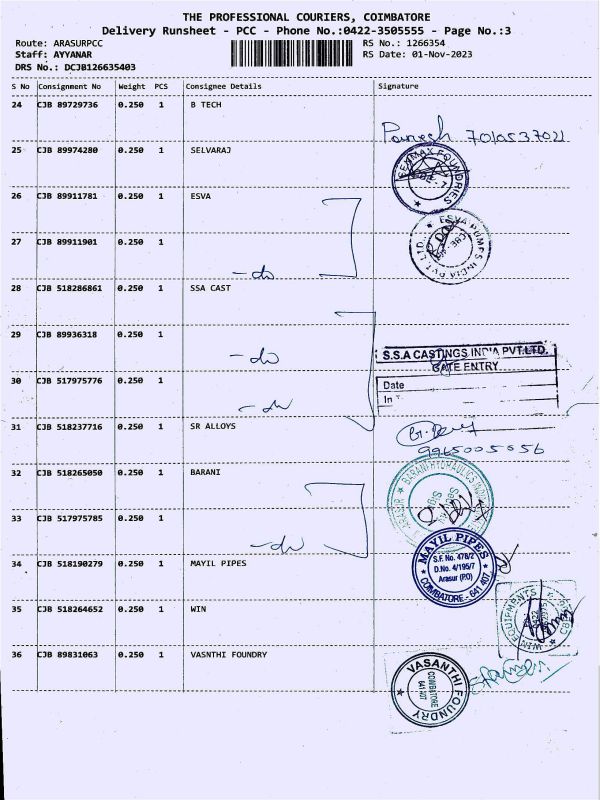 THE PROFESSIONAL COURIERS, COIMBATORE
Delivery Runsheet - PCC - Phone No.:0422-3505555 - Page No.:3
Route: ARASURPCC
RS No.: 1266354
Staff: AYYANAR
RS Date: 01-Nov-2023
DRS No.: DCJB126635403
S No Consignment No Weight PCS Consignee Details Signature
24 CJB 89729736 0.250 1 B TECH
7010537021
25 CJB 89974280 0.250 1 SELVARAJ
FEXMAX FOUNDRIES
26 CJB 89911781 0.250 1 ESVA
ESVA PUMPS INDIA PVT. LTD.
27 CJB 89911901 0.250 1
-do
28 CJB 518286861 0.250 1 SSA CAST
29 CJB 89936318 0.250 1
-do
S.S.A CASTINGS INDIA PVT.LTD.
GATE ENTRY
Date
In
30 CJB 517975776 0.250 1
-do
31 CJB 518237716 0.250 1 SR ALLOYS
9965005056
32 CJB 518265050 0.250 1 BARANI
BARANI HYDRAULICS INDIA
ARASUR
33 CJB 517975785 0.250 1
-do
34 CJB 518190279 0.250 1 MAYIL PIPES
MAYIL PIPES
S.F. No. 478/2
D.No. 4/195/7
Arasur (P.O)
COIMBATORE - 641 407
35 CJB 518264652 0.250 1 WIN
WIN EQUIPMENTS
36 CJB 89831063 0.250 1 VASNTHI FOUNDRY
VASANTHI FOUNDRY
COIMBATORE
641 407